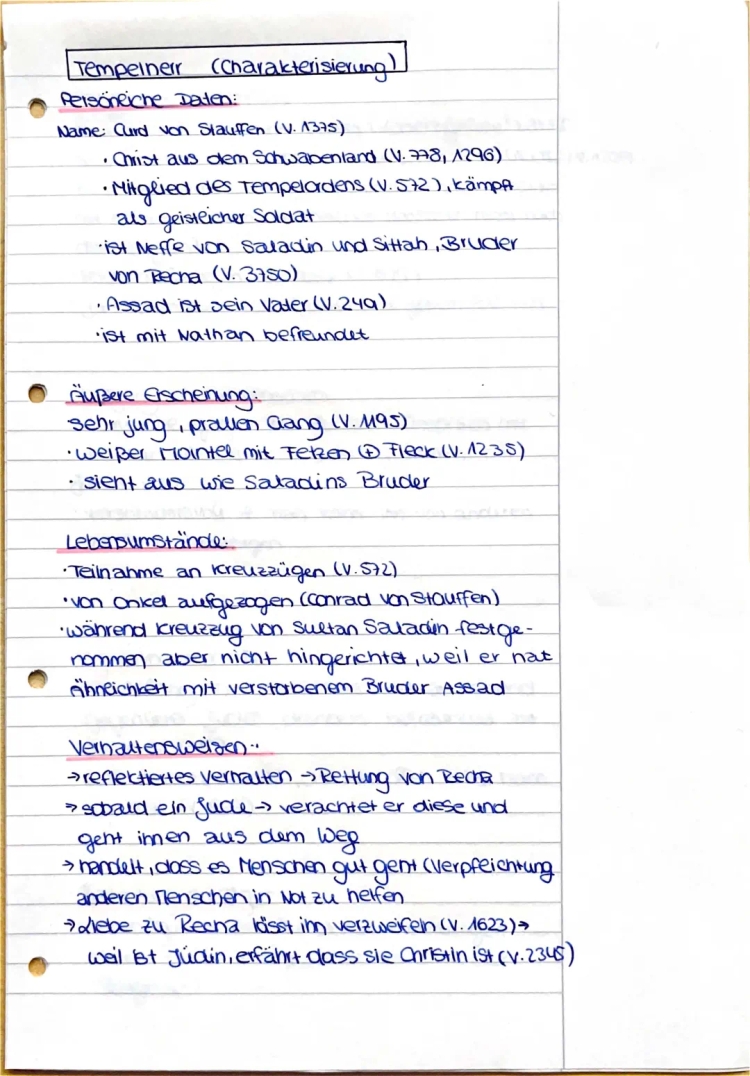 Tempelherr (Charakterisierung)
Persönliche Daten:
Name: Curd von Stauffen (V. 1375)
· Christ aus dem Schwabenland (V. 778, 1296)
· Mitglied des Tempelordens (V. 572), kämpft
als geistlicher Soldat
· ist Neffe von Saladin und Sittah, Bruder
von Recha (V. 3750)
· Assad ist sein Vater (V. 249)
· ist mit Nathan befreundet
Äußere Erscheinung:
sehr jung, prallen Gang (V. 1195)
· weißer Mantel mit Fetzen ⊕ Fleck (V. 1235)
· sieht aus wie Saladins Bruder
Lebensumstände:
· Teilnahme an Kreuzzügen (V. 572)
· von Onkel aufgezogen (Conrad von Stauffen)
· während Kreuzzug von Sultan Saladin festge-
nommen, aber nicht hingerichtet, weil er hat
Ähnlichkeit mit verstorbenem Bruder Assad
Verhaltensweisen:
→ reflektiertes Verhalten → Rettung von Recha
→ sobald ein Jude → verachtet er diese und
geht ihnen aus dem Weg
→ handelt, dass es Menschen gut geht (Verpflichtung
anderen Menschen in Not zu helfen
→ Liebe zu Recha lässt ihn verzweifeln (V. 1623) →
weil ist Jüdin, erfährt dass sie Christin ist (V. 2345)